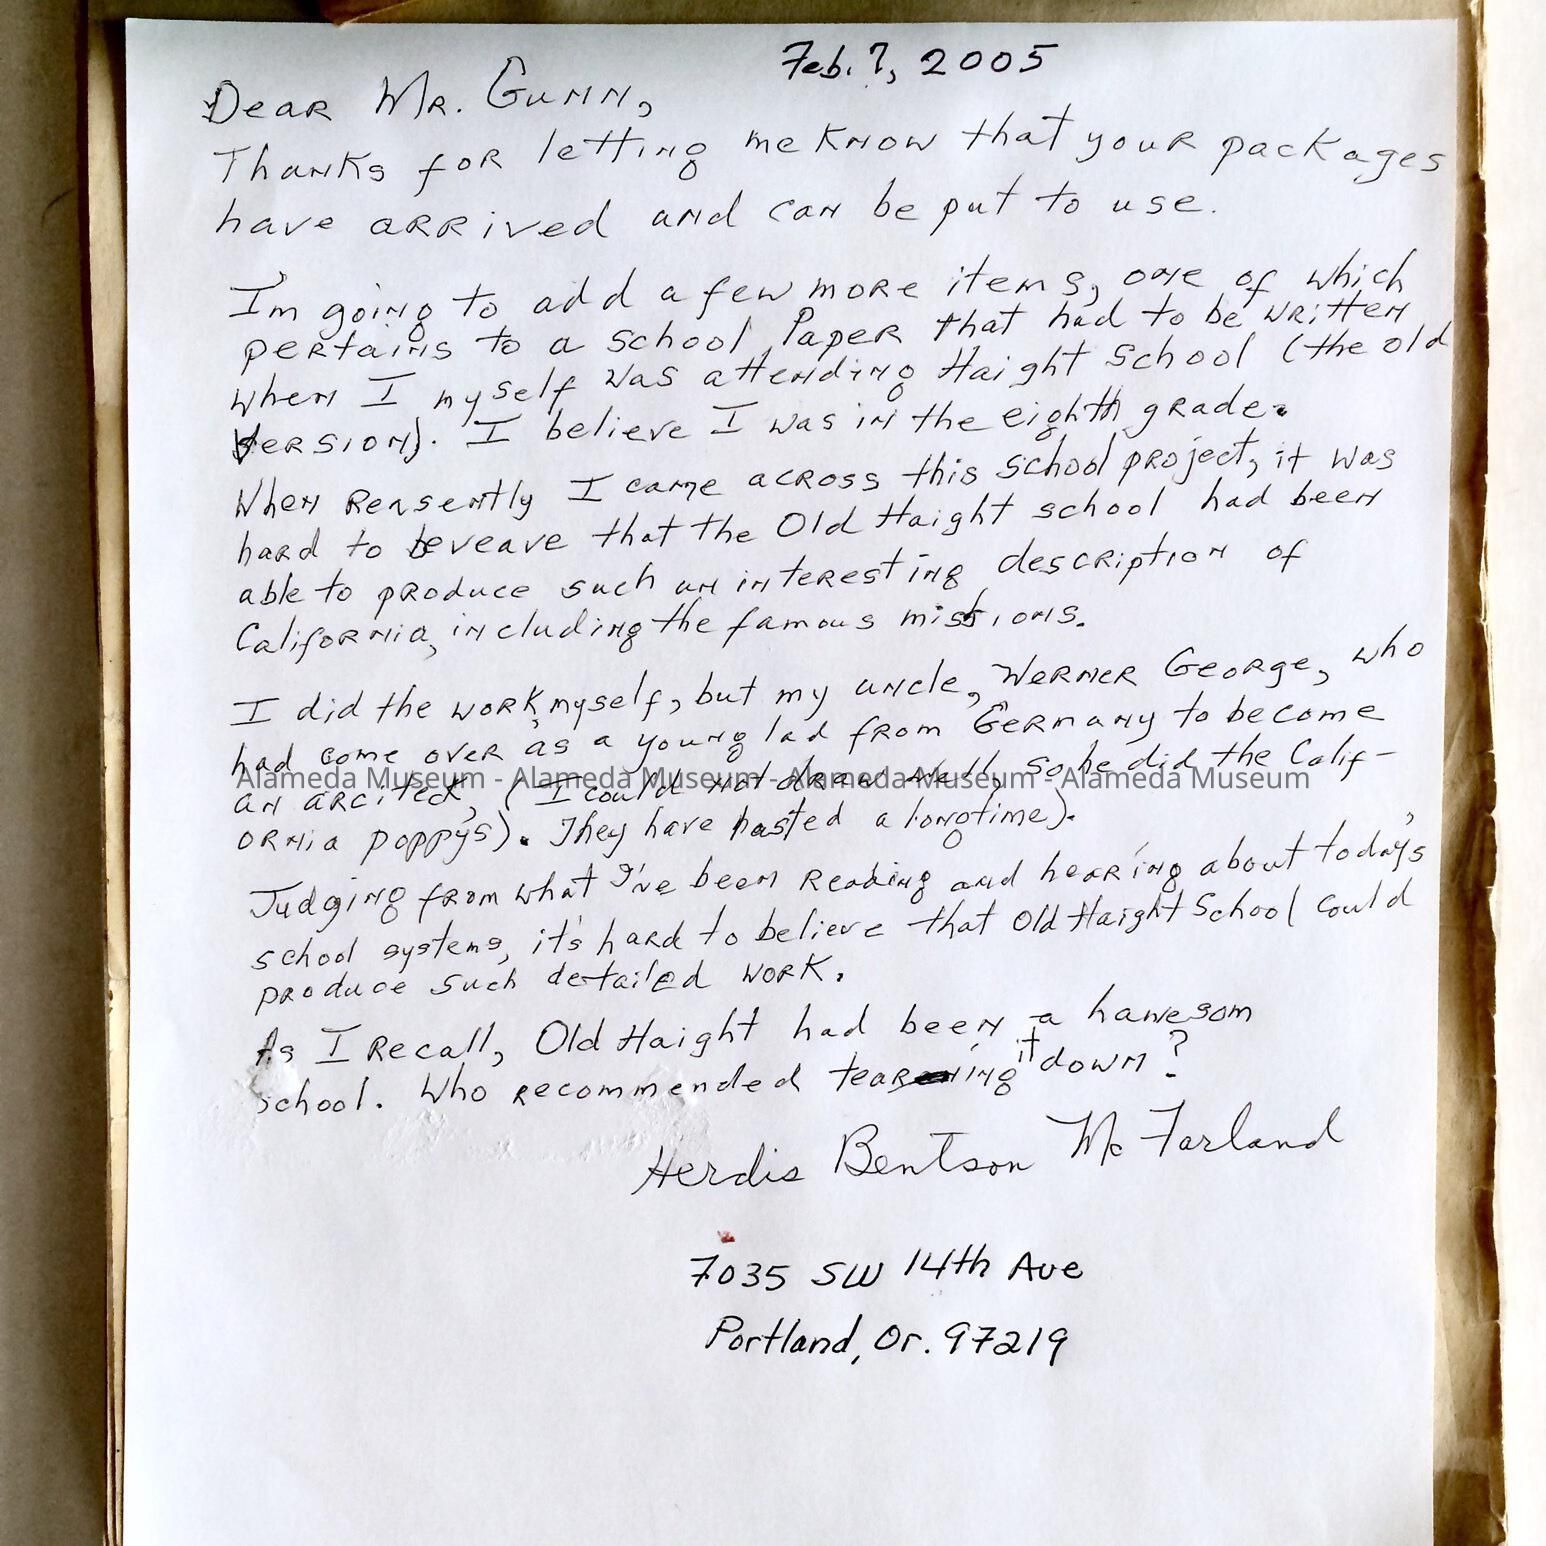 Feb. 7, 2005
Dear Mr. Gunn,
Thanks for letting me know that your packages
have arrived and can be put to use.
Im going to add a few more items, one of which
pertains to a school Paper that had to be written
when I myself was attending Haight School (the old
version). I believe I was in the eighth grade.
When reasently I came across this school project, it was
hard to beveave that the Old Haight school had been
able to produce such an interesting description of
California, including the famous missions.
I did the work myself, but my uncle, Werner George, who
had come over as a young lad from Germany to become
an arcitect, (I could not draw well, so he did the Calif-
Alameda Museum - Alameda Museum - Alameda Museum - Alameda Museum
ornia poppys). They have lasted a long time).
Judging from what I've been reading and hearing about today's
school systems, it's hard to believe that Old Haight School could
produce such detailed work.
As I recall, Old Haight had been a hanesom
school. Who recommended tearing it down?
Herdis Bentson McFarland
7035 SW 14th Ave
Portland, Or. 97219